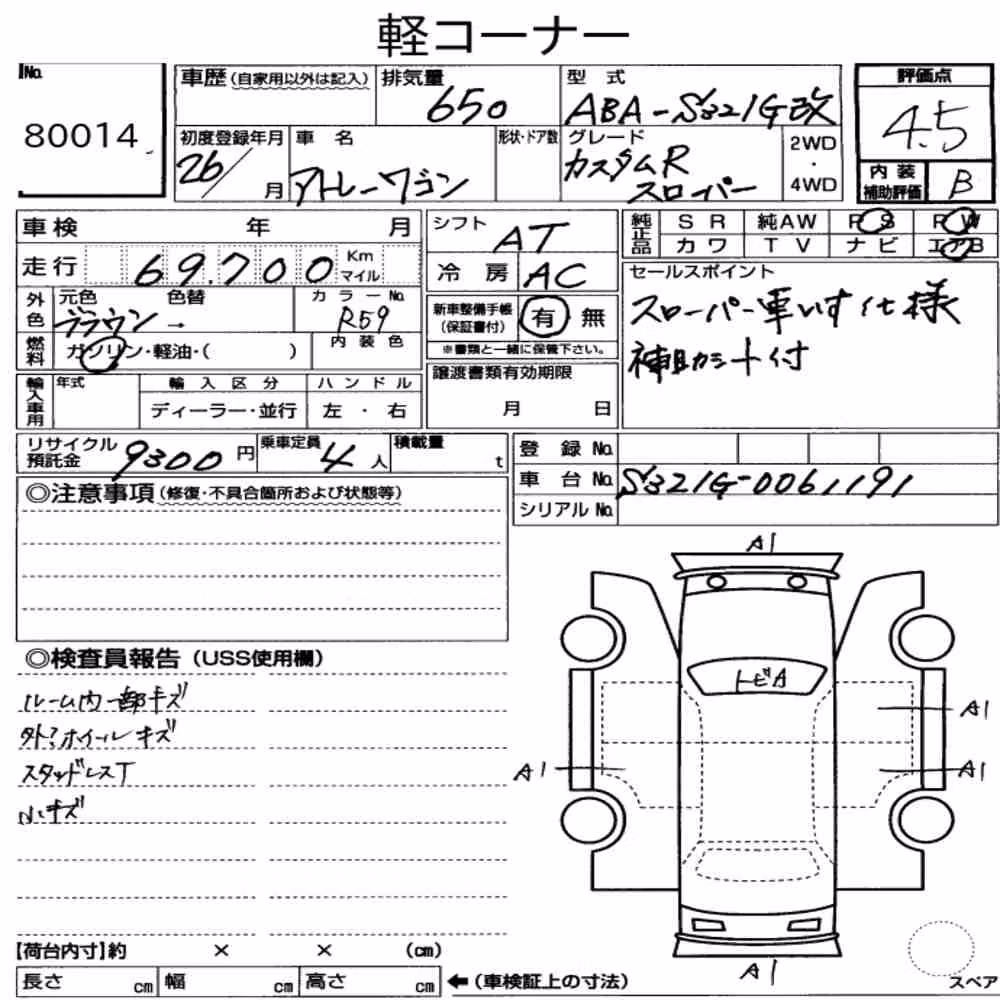 軽コーナー
No. 80014
車歴 (自家用以外は記入)
排気量 650
型式 ABA-S321G改
評価点 4.5
初度登録年月 26/ 月
車名 アトレーワゴン
形状・ドア数
グレード カスタムR スローパー
2WD ・ 4WD
内装補助評価 B
車検 年 月
走行 69,700 Km マイル
外色 元色 ブラウン → 色替
カラーNo. R59
燃料 ガソリン・軽油・( )
内装色
シフト AT
冷房 AC
新車整備手帳 (保証書付) 有 無
※書類と一緒に保管下さい。
純正品 SR 純AW PS PW
カワ TV ナビ エアB
セールスポイント
スローパー車いす仕様
補助シート付
輸入車用 年式 輸入区分 ハンドル
ディーラー・並行 左・右
譲渡書類有効期限
月 日
リサイクル預託金 9300円
乗車定員 4人
積載量 t
登録No.
車台No. S321G-0061191
シリアルNo.
◎注意事項 (修復・不具合箇所および状態等)
◎検査員報告 (USS使用欄)
ルーム内一部キズ
ホイールキズ
スタッドレスT
キズ
A1
トビA
A1
A1
A1
A1
【荷台内寸】約 × × (cm)
長さ cm 幅 cm 高さ cm ←(車検証上の寸法)
スペア